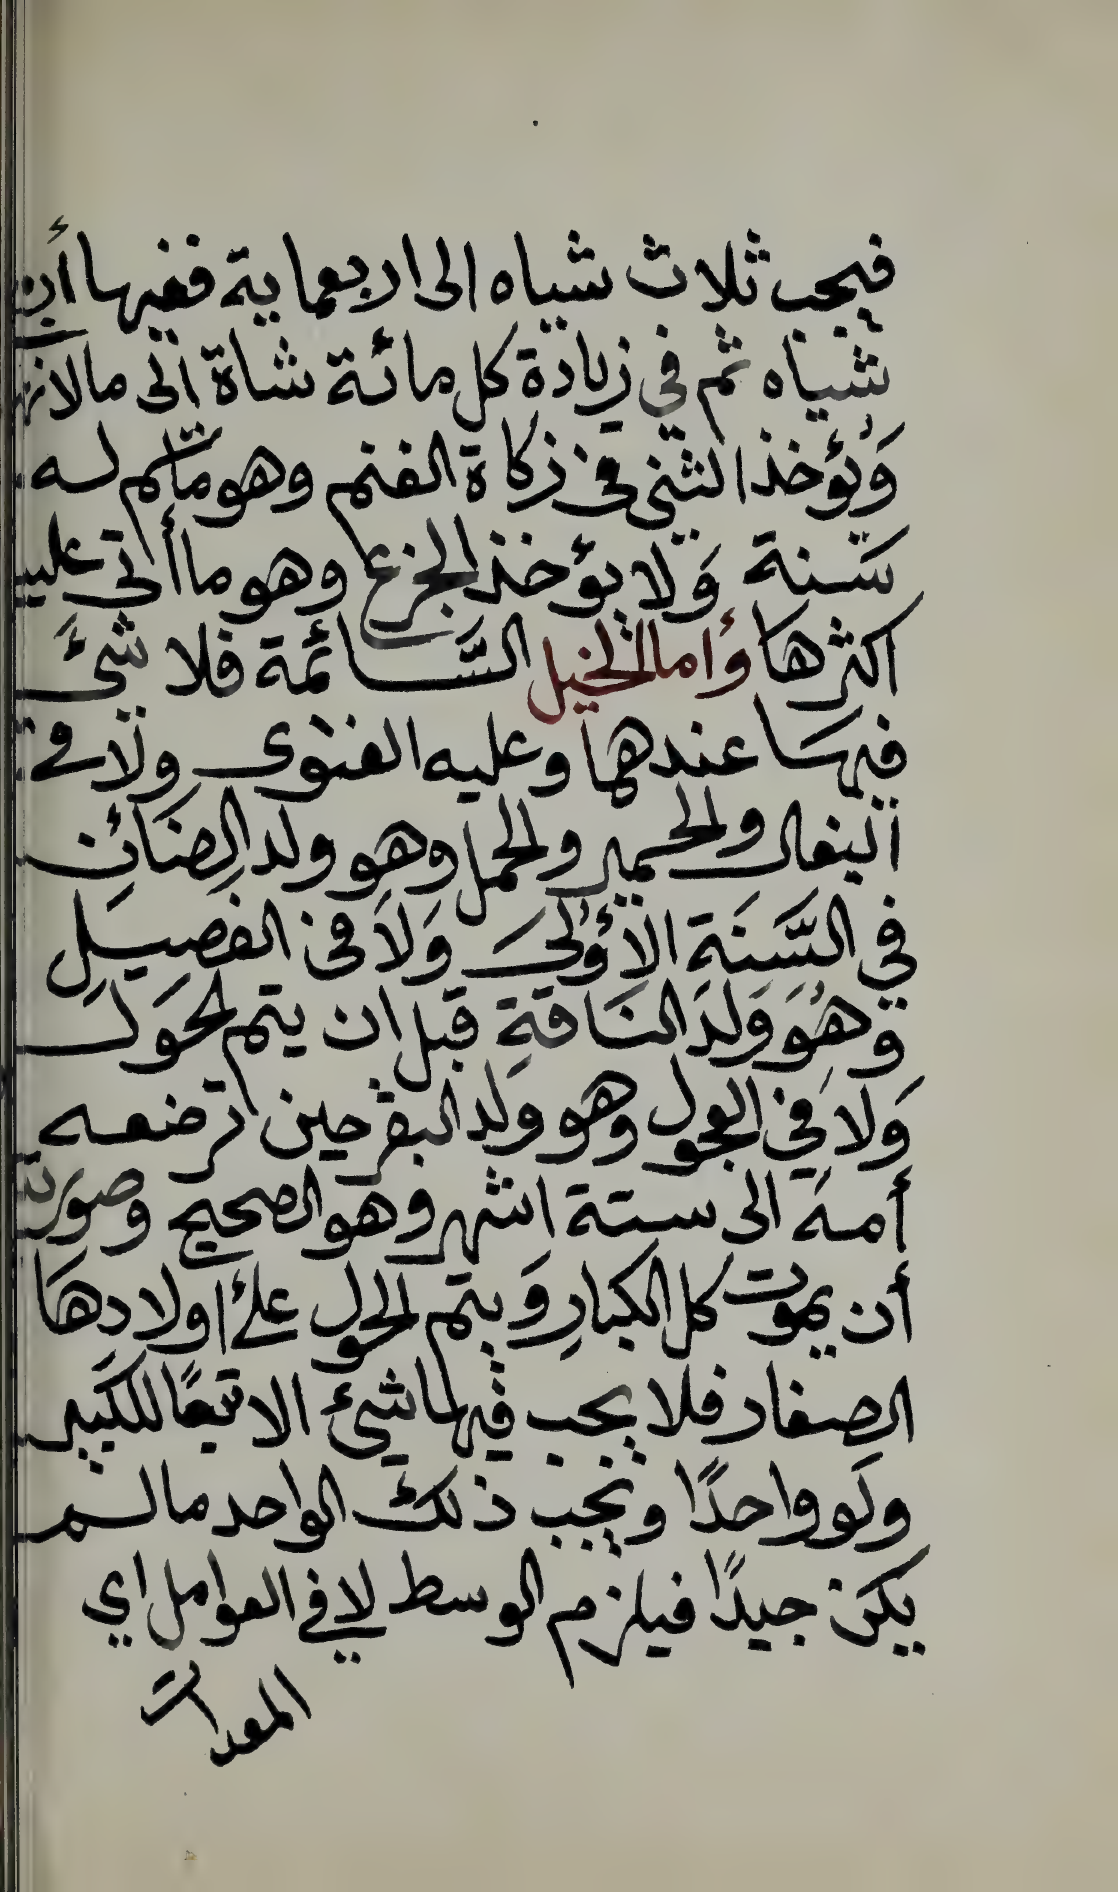 فيجب ثلاث شياه الى اربعماية ففيها
شياه ثم في زيادة كل مائة شاة الى مالا
وَيُؤخذ الثني في زكاة الغنم وهو ماتم له
سَنة وَلا يؤخذ الجزع وهو ما أتى
اكثرها وأما الخيل السَّائمة فلا شئَ
فيهَا عندها وعليه الفتوى ولا في
البغال والحمير والحمل وهو ولد الضَائن
في السَّنَة الأولىَ وَلاَ في الفصيَلِ
وَهُوَ وَلدَ النَاقةِ قبل ان يتم لحَوَل
وَلا في العجول وهَو وَلد البقر حين ترضعه
أمهُ الى ستة اشهر وهو الصحيح
أن يموت كل الكبارِ وَيتم لحول علىٰ اولادِهَا
الصغار فلا يجب فيها شئ الا تبعًا للكبير
ولَو واحدًا ويجب ذلك الواحد مالم
يكن جيدًا فيلزم الوسط لا في العوامل اي
المعدات